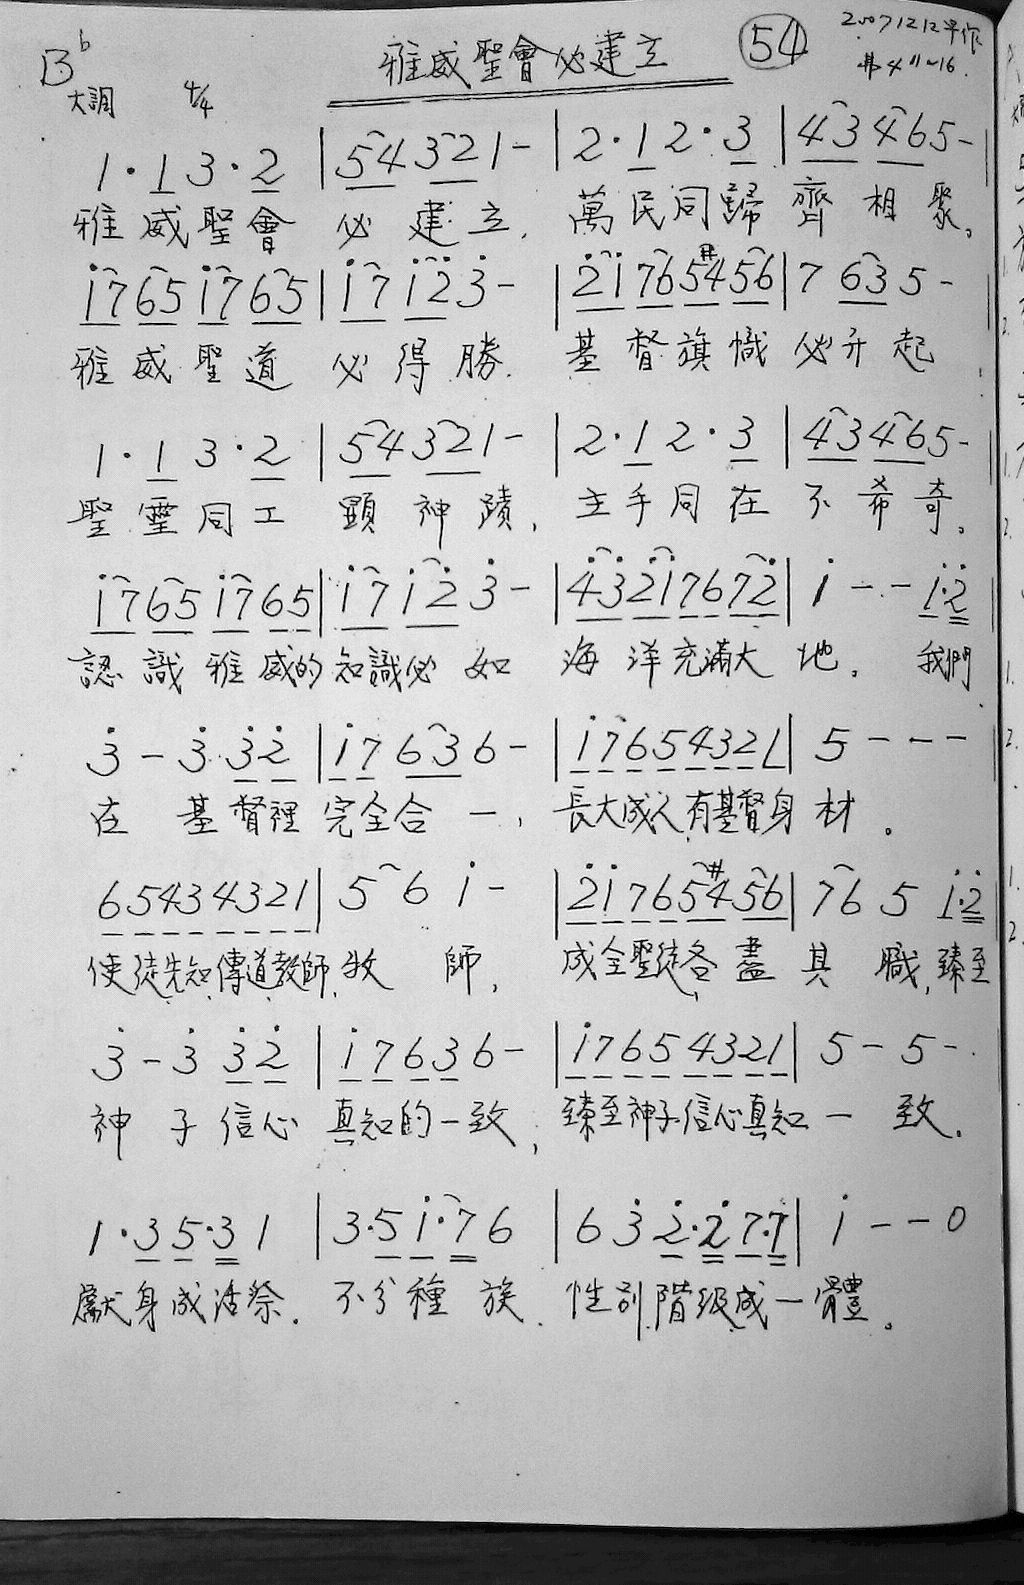 B♭ 大調 4/4 雅威聖會必建立 54 20071212早作
弗4 11~16
1·1 3·2 | 54 32 1- | 2·1 2·3 | 43 46 5- |
雅威聖會 必建立, 萬民同歸 齊相聚。
i7 65 i7 65 | i7 i2̇ 3̇- | 2̇i 76 5#4 56 | 7 63 5-
雅威聖道 必得勝. 基督旗幟 必升起
1·1 3·2 | 54 32 1- | 2·1 2·3 | 43 46 5-
聖靈同工 顯神蹟, 主手同在 不希奇。
i7 65 i7 65 | i7 i2̇ 3̇- | 4̇3̇ 2̇i 76 72̇ | i - - i·2̇
認識雅威的知識必如 海洋充滿大地. 我們
3̇ - 3̇ 3̇2̇ | i7 63 6- | i7654321 | 5 - - -
在 基督裡 完全合一, 長大成人有基督身材。
65434321 | 5 6 i - | 2̇i 76 5#4 56 | 76 5 i·2̇
使徒先知傳道教師牧師, 成全聖徒各盡其職,臻至
3̇ - 3̇ 3̇2̇ | i7 63 6- | i765 4321 | 5 - 5 -
神子信心 真知的一致, 臻至神子信心真知一致.
1·3 5·3 1 | 3·5 i·7 6 | 6 3̇ 2̇·2̇ 7·7 | i - - 0
獻身成活祭. 不分種族. 性別階級成一體。